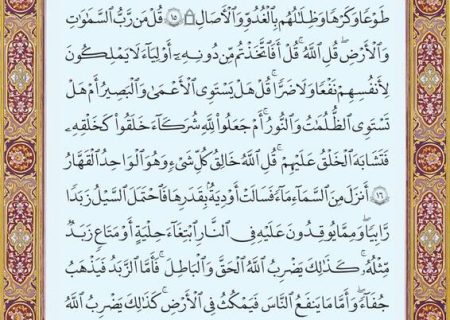 طَوْعًا وَكَرْهًا وَظِلَٰلُهُم بِٱلْغُدُوِّ وَٱلْءَاصَالِ ۩ ١٥ قُلْ مَن رَّبُّ ٱلسَّمَٰوَٰتِ
وَٱلْأَرْضِ قُلِ ٱللَّهُ ۚ قُلْ أَفَٱتَّخَذْتُم مِّن دُونِهِۦٓ أَوْلِيَآءَ لَا يَمْلِكُونَ
لِأَنفُسِهِمْ نَفْعًا وَلَا ضَرًّا ۚ قُلْ هَلْ يَسْتَوِى ٱلْأَعْمَىٰ وَٱلْبَصِيرُ أَمْ هَلْ
تَسْتَوِى ٱلظُّلُمَٰتُ وَٱلنُّورُ ۗ أَمْ جَعَلُوا۟ لِلَّهِ شُرَكَآءَ خَلَقُوا۟ كَخَلْقِهِۦ
فَتَشَٰبَهَ ٱلْخَلْقُ عَلَيْهِمْ ۚ قُلِ ٱللَّهُ خَٰلِقُ كُلِّ شَىْءٍ وَهُوَ ٱلْوَٰحِدُ ٱلْقَهَّٰرُ
١٦ أَنزَلَ مِنَ ٱلسَّمَآءِ مَآءً فَسَالَتْ أَوْدِيَةٌۢ بِقَدَرِهَا فَٱحْتَمَلَ ٱلسَّيْلُ زَبَدًا
رَّابِيًا ۚ وَمِمَّا يُوقِدُونَ عَلَيْهِ فِى ٱلنَّارِ ٱبْتِغَآءَ حِلْيَةٍ أَوْ مَتَٰعٍ زَبَدٌ
مِّثْلُهُۥ ۚ كَذَٰلِكَ يَضْرِبُ ٱللَّهُ ٱلْحَقَّ وَٱلْبَٰطِلَ ۚ فَأَمَّا ٱلزَّبَدُ فَيَذْهَبُ
جُفَآءً ۖ وَأَمَّا مَا يَنفَعُ ٱلنَّاسَ فَيَمْكُثُ فِى ٱلْأَرْضِ ۚ كَذَٰلِكَ يَضْرِبُ ٱللَّهُ